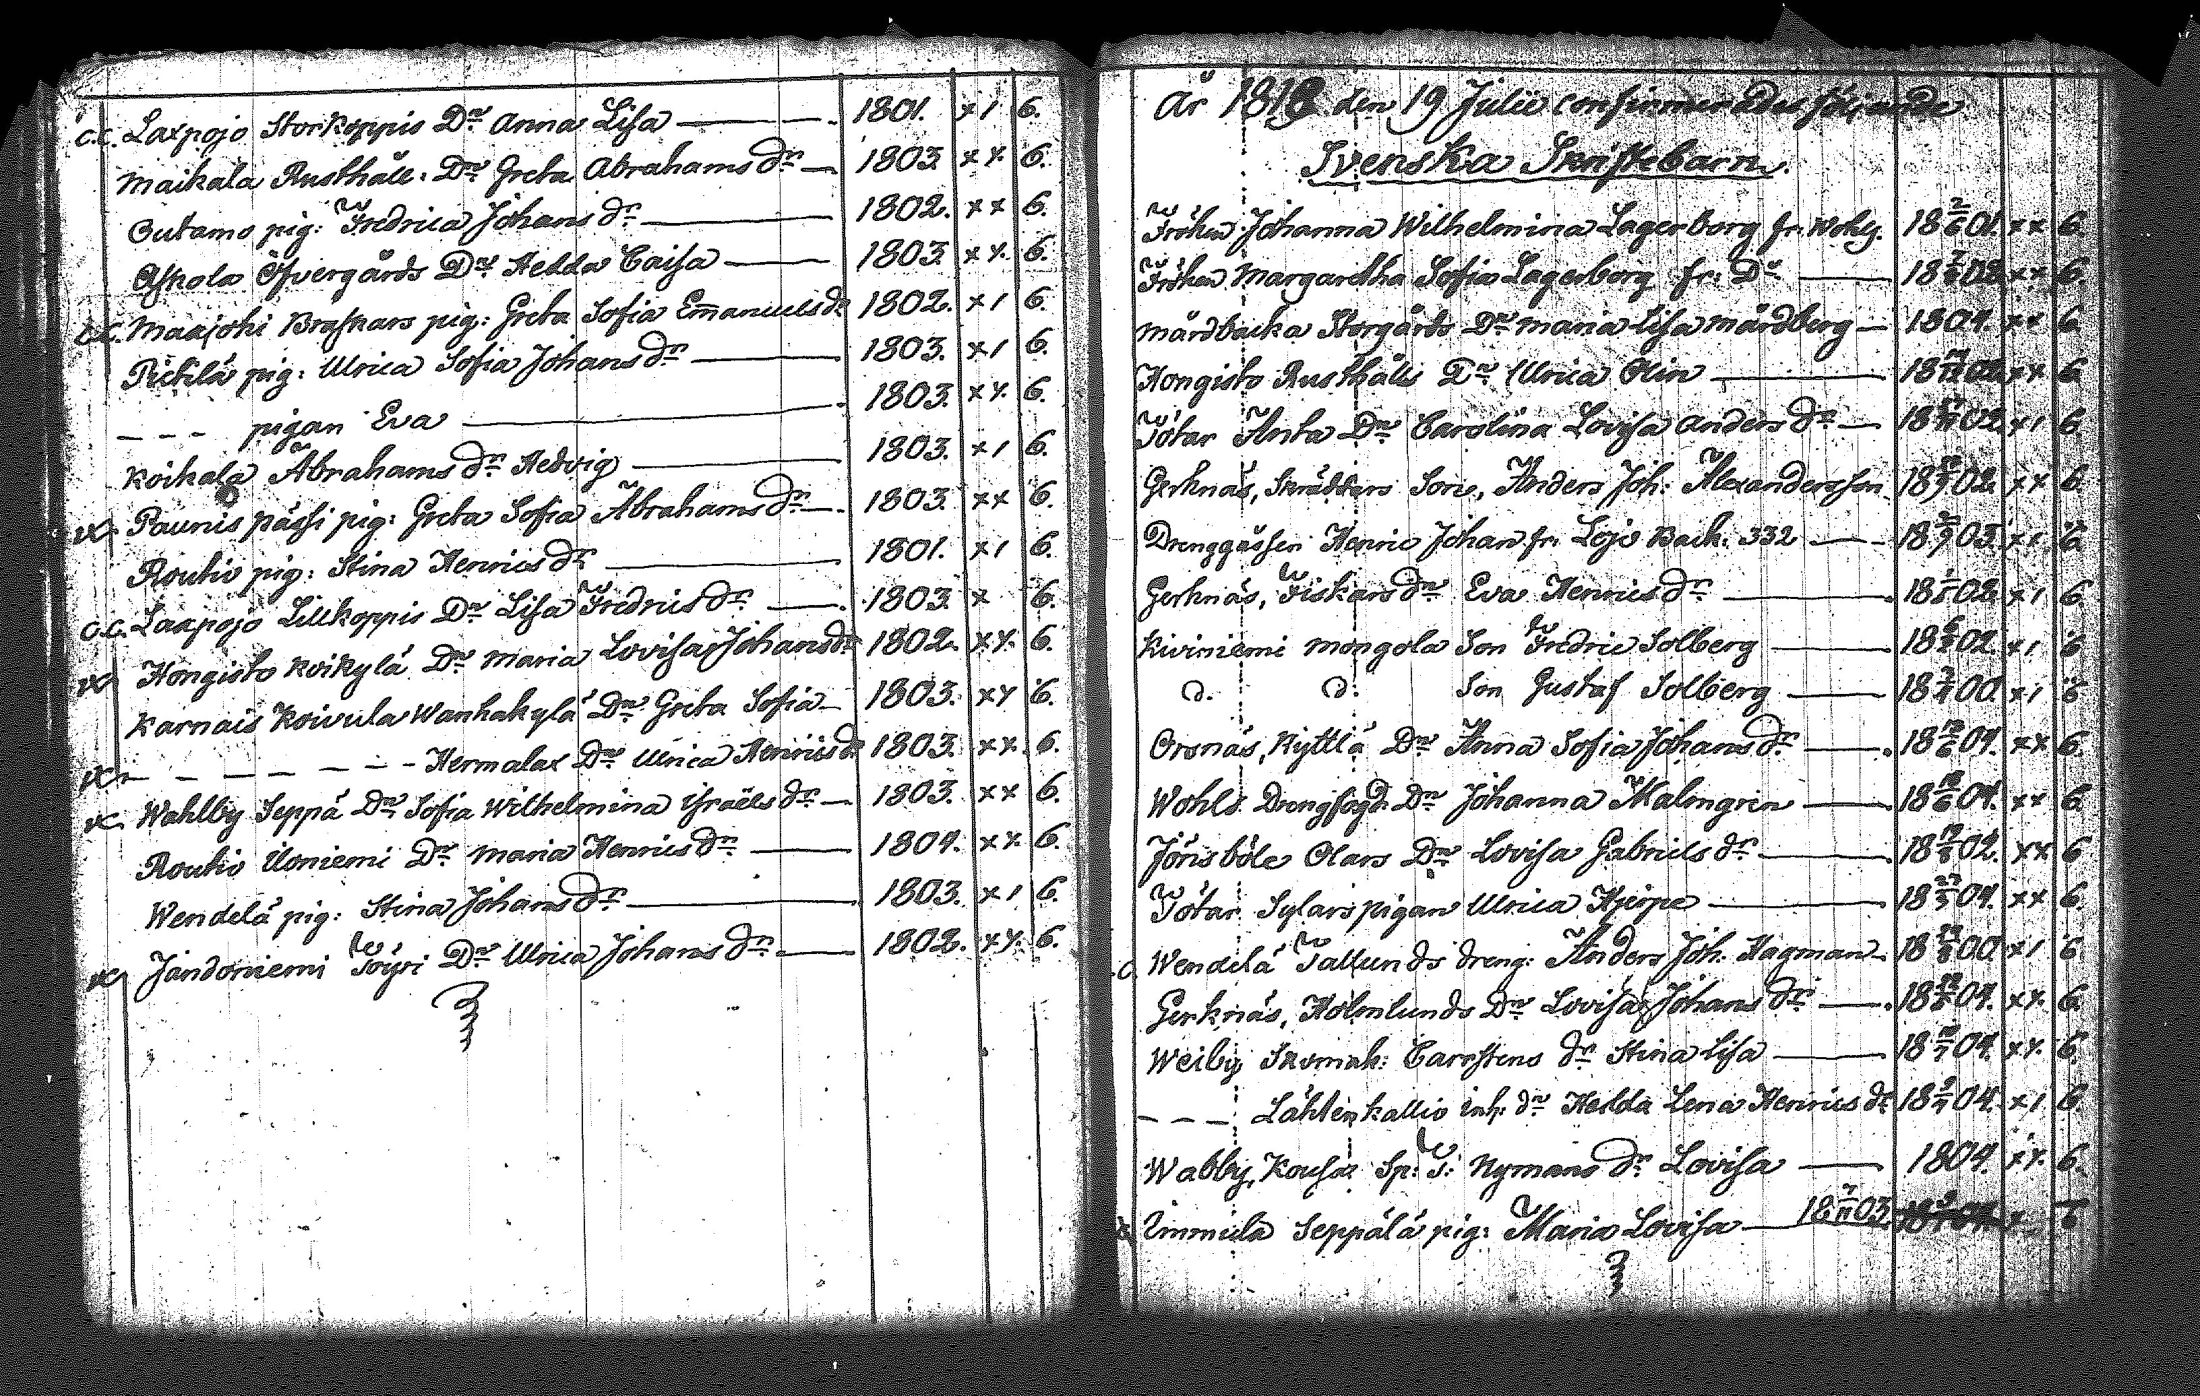 c.c. Laxpojo Storkoppis Dr Anna Lisa — 1801. x 1 6.
Maikala Rusthåll. Dr Greta Abrahams dr — 1803. x x. 6.
Outamo pig: Fredrica Johans dr — 1802. x x 6.
Askola Öfvergårds Dr Hedda Caisa — 1803. x x. 6.
c.c. Maajohi Braskars pig: Greta Sofia Emanuels dr 1802. x 1 6.
Pietilä pig: Ulrica Sofia Johans dr — 1803. x 1 6.
- - - pigan Eva — 1803. x x. 6.
Koikala Abrahams dr Hedvig — 1803. x 1 6.
Paunis pässi pig: Greta Sofia Abrahams dr — 1803. x x 6.
Routio pig: Stina Henrics dr — 1801. x 1 6.
c.c. Laxpojo Lillkoppis Dr Lisa Fredrics dr — 1803. x 6.
Hongisto Koikylä Dr Maria Lovisa Johans dr 1802. x x. 6.
Karnais Koivula Wanhakylä Dr Greta Sofia — 1803. x x 6.
- - - - - - Hermalax Dr Ulrica Henrics dr 1803. x x. 6.
Wahlby Seppä Dr Sofia Wilhelmina Israëls dr — 1803. x x 6.
Routio Uoniemi Dr Maria Henrics dr — 1804. x x. 6.
Wendelä pig: Stina Johans dr — 1803. x 1 6.
Jandoniemi Töyri Dr Ulrica Johans dr — 1802. x x. 6.
År 1818 den 19 Julii confirmerades följande
Svenska Skriftebarn.
Fröken Johanna Wilhelmina Lagerborg fr. Wohls. 18 2/6 01. x x 6.
Fröken Margaretha Sofia Lagerborg fr: Do — 18 02 x x 6.
Mårdbacka Storgårds Dr Maria Lisa Mårdberg — 1804. x x 6.
Hongisto Rusthålls Dr Ulrica Olin — 18 02 x x 6.
Tötar Anta Dr Carolina Lovisa Anders dr — 18 02 x 1 6.
Gerknäs, Skräddars Son, Anders Joh: Alexandersson 18 02. x x 6.
Drenggåssen Henric Johan fr. Lojo Back. 332 — 18 03. x 1. 6.
Gerknäs, Fiskars dr Eva Henrics dr — 18 02 x 1 6.
Kiviniemi Mongola Son Fredric Solberg — 18 02. x 1 6
d. d: Son Gustaf Solberg — 18 00. x 1 6
Orsnäs, Kyttlä Dr Anna Sofia Johans dr — 18 04. x x 6.
Wohls Drengfogd. Dr Johanna Malmgren — 18 04. x x 6.
Jönsböle Olars Dr Lovisa Gabriels dr — 18 02. x x 6
Tötar Sylars pigan Ulrica Hjerpe — 18 04. x x 6.
c. Wendelä Tallunds dreng: Anders Joh. Hagman 18 00 x 1 6
Gerknäs, Holmlunds Dr Lovisa Johans dr — 18 04. x x. 6.
Weiby Skomak: Carstens dr Stina Lisa — 18 04. x x. 6.
- - - Lähtenkallio inh. dr Hedda Lena Henrics dr 18 04. x 1 6.
Wabby, Kousax Sp: T: Nymans dr Lovisa — 1804. x x. 6.
Immula Seppälä pig: Maria Lovisa — 18 7/11 03. 6